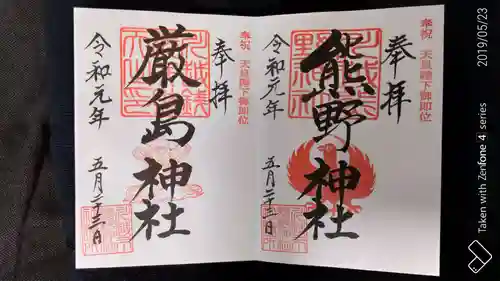 奉祝 天皇陛下御即位
奉拝
熊野神社
令和元年
五月二十三日
奉祝 天皇陛下御即位
奉拝
厳島神社
令和元年
五月二十三日
2019/05/23
Taken with Zenfone 4 series